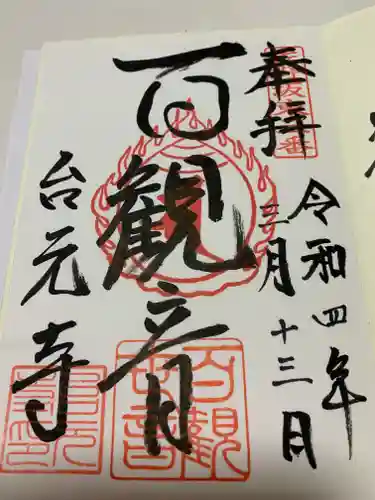 奉拝
令和四年
三月十三日
百観音
台元寺
百觀